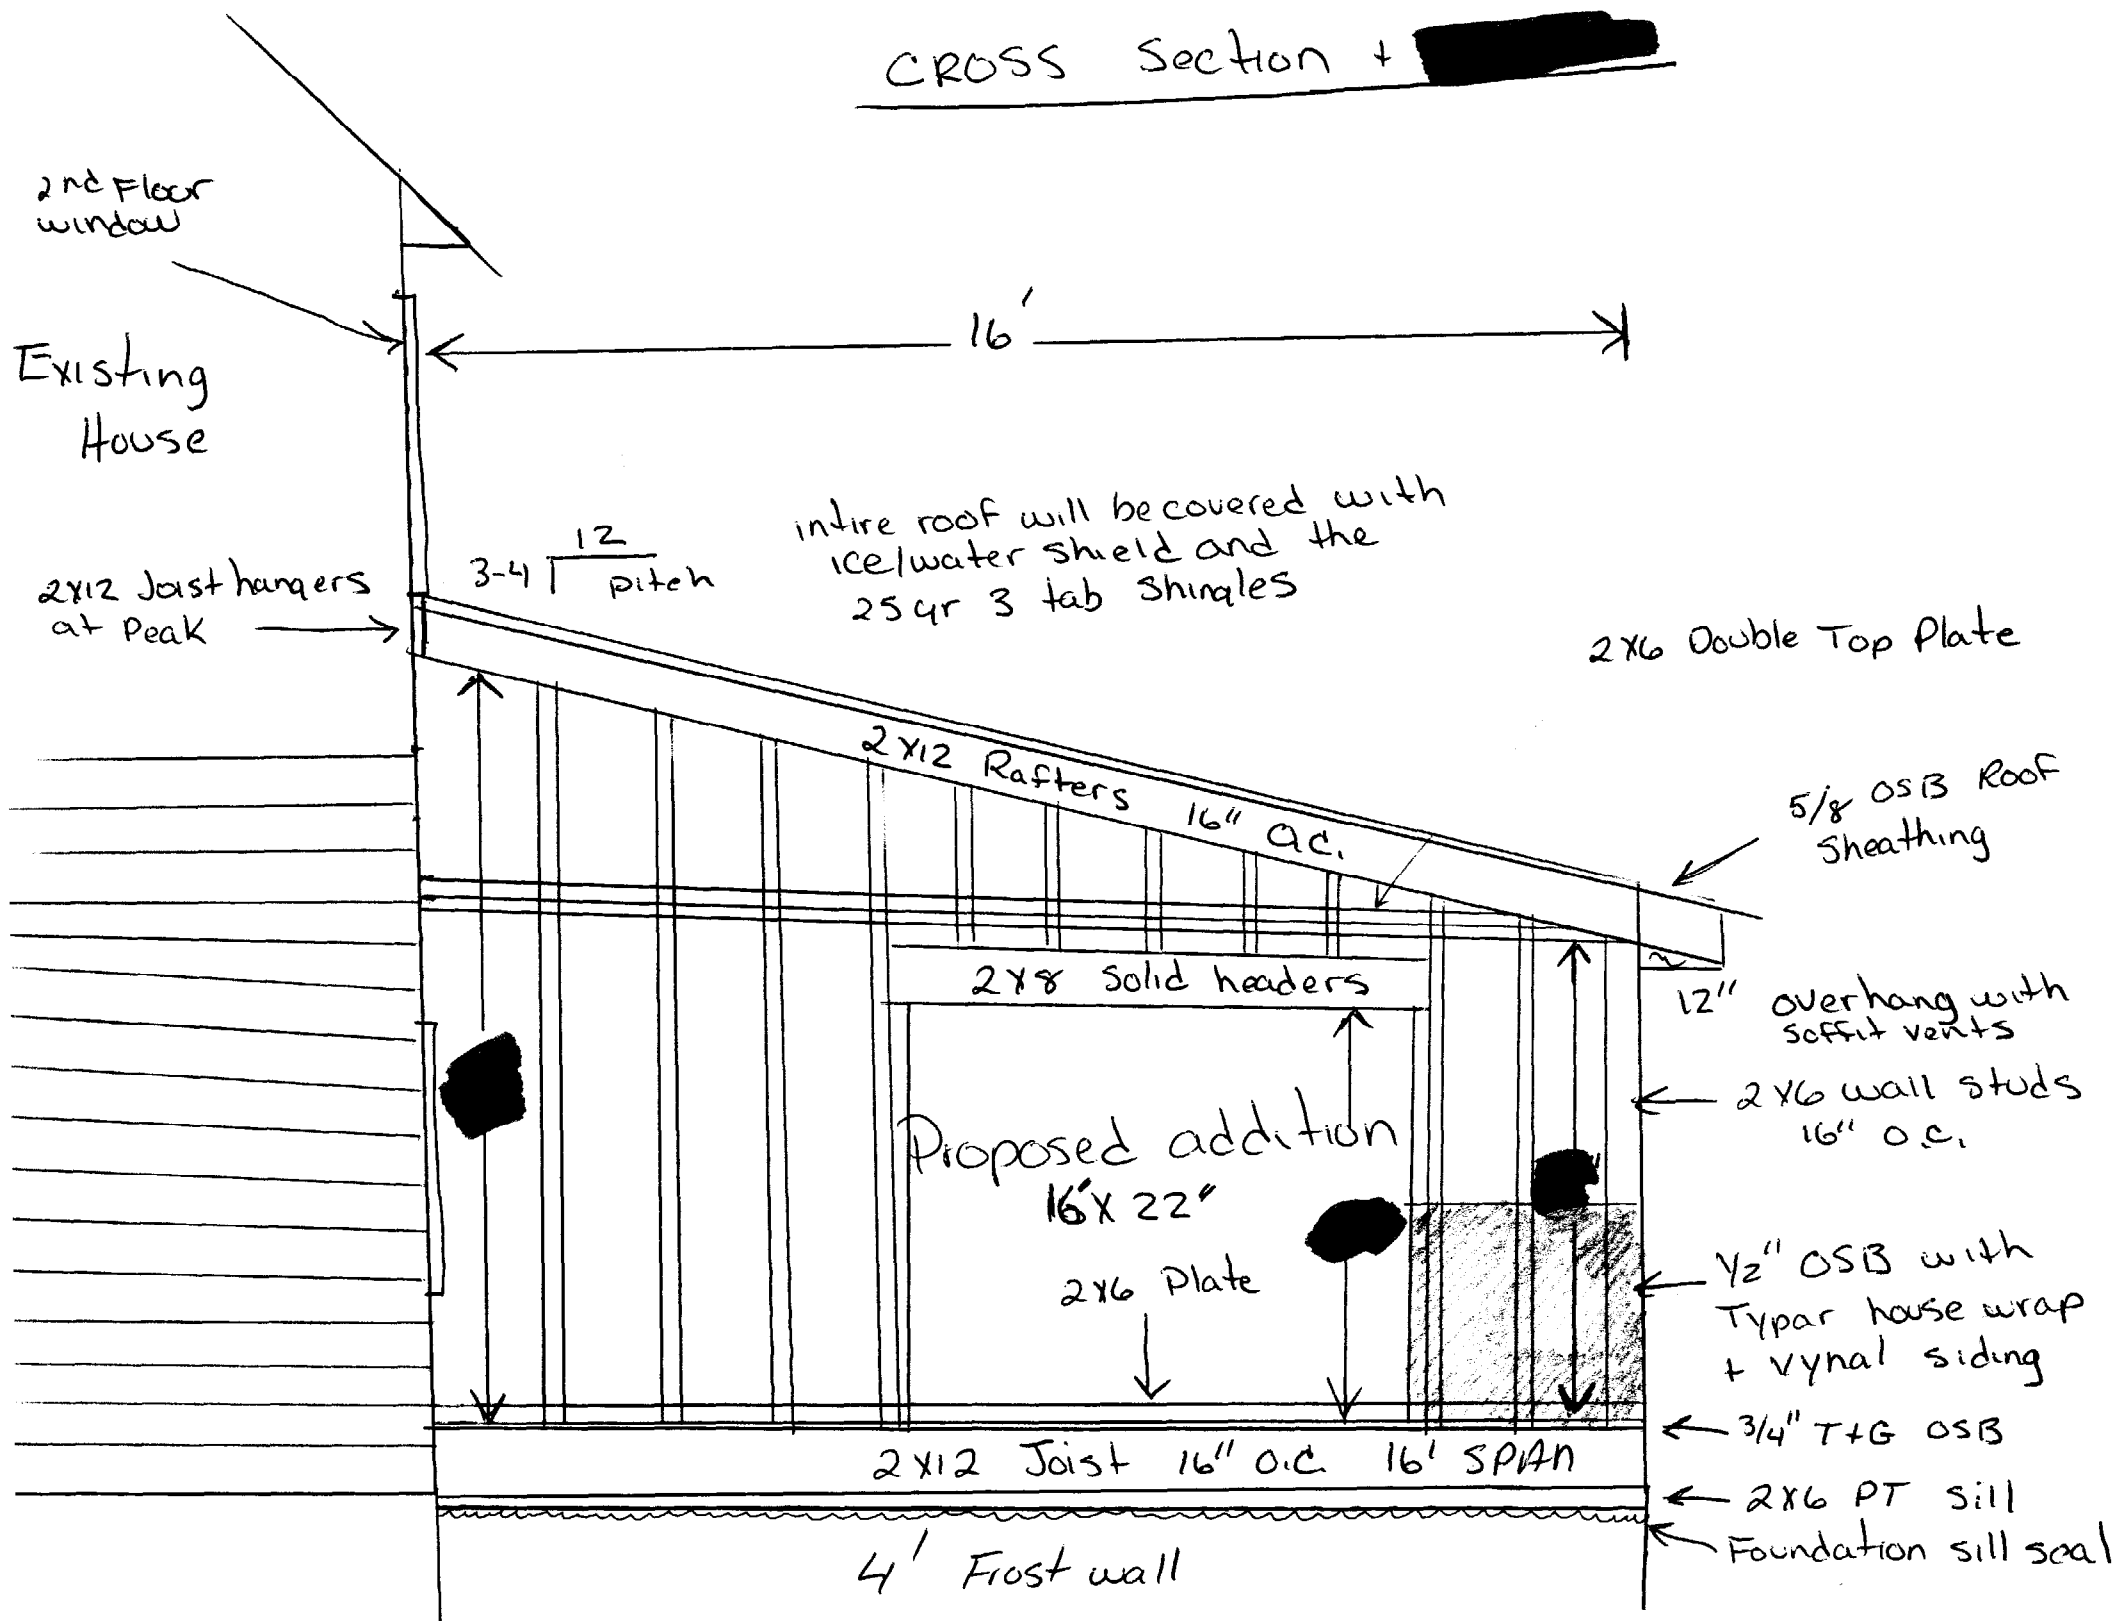 CROSS Section +
2nd Floor
window
16'
Existing
House
3-4 12
pitch
intire roof will be covered with
ice/water shield and the
25 yr 3 tab shingles
2x12 Joist hangers
at Peak
2x6 Double Top Plate
2x12 Rafters 16" O.C.
5/8 OSB Roof
Sheathing
2x8 Solid headers
12" overhang with
soffit vents
2x6 wall studs
16" O.C.
Proposed addition
16'x 22"
2x6 Plate
1/2" OSB with
Typar house wrap
+ vynal siding
3/4" T+G OSB
2x12 Joist 16" O.C. 16' SPAN
2x6 PT Sill
Foundation sill seal
4' Frost wall